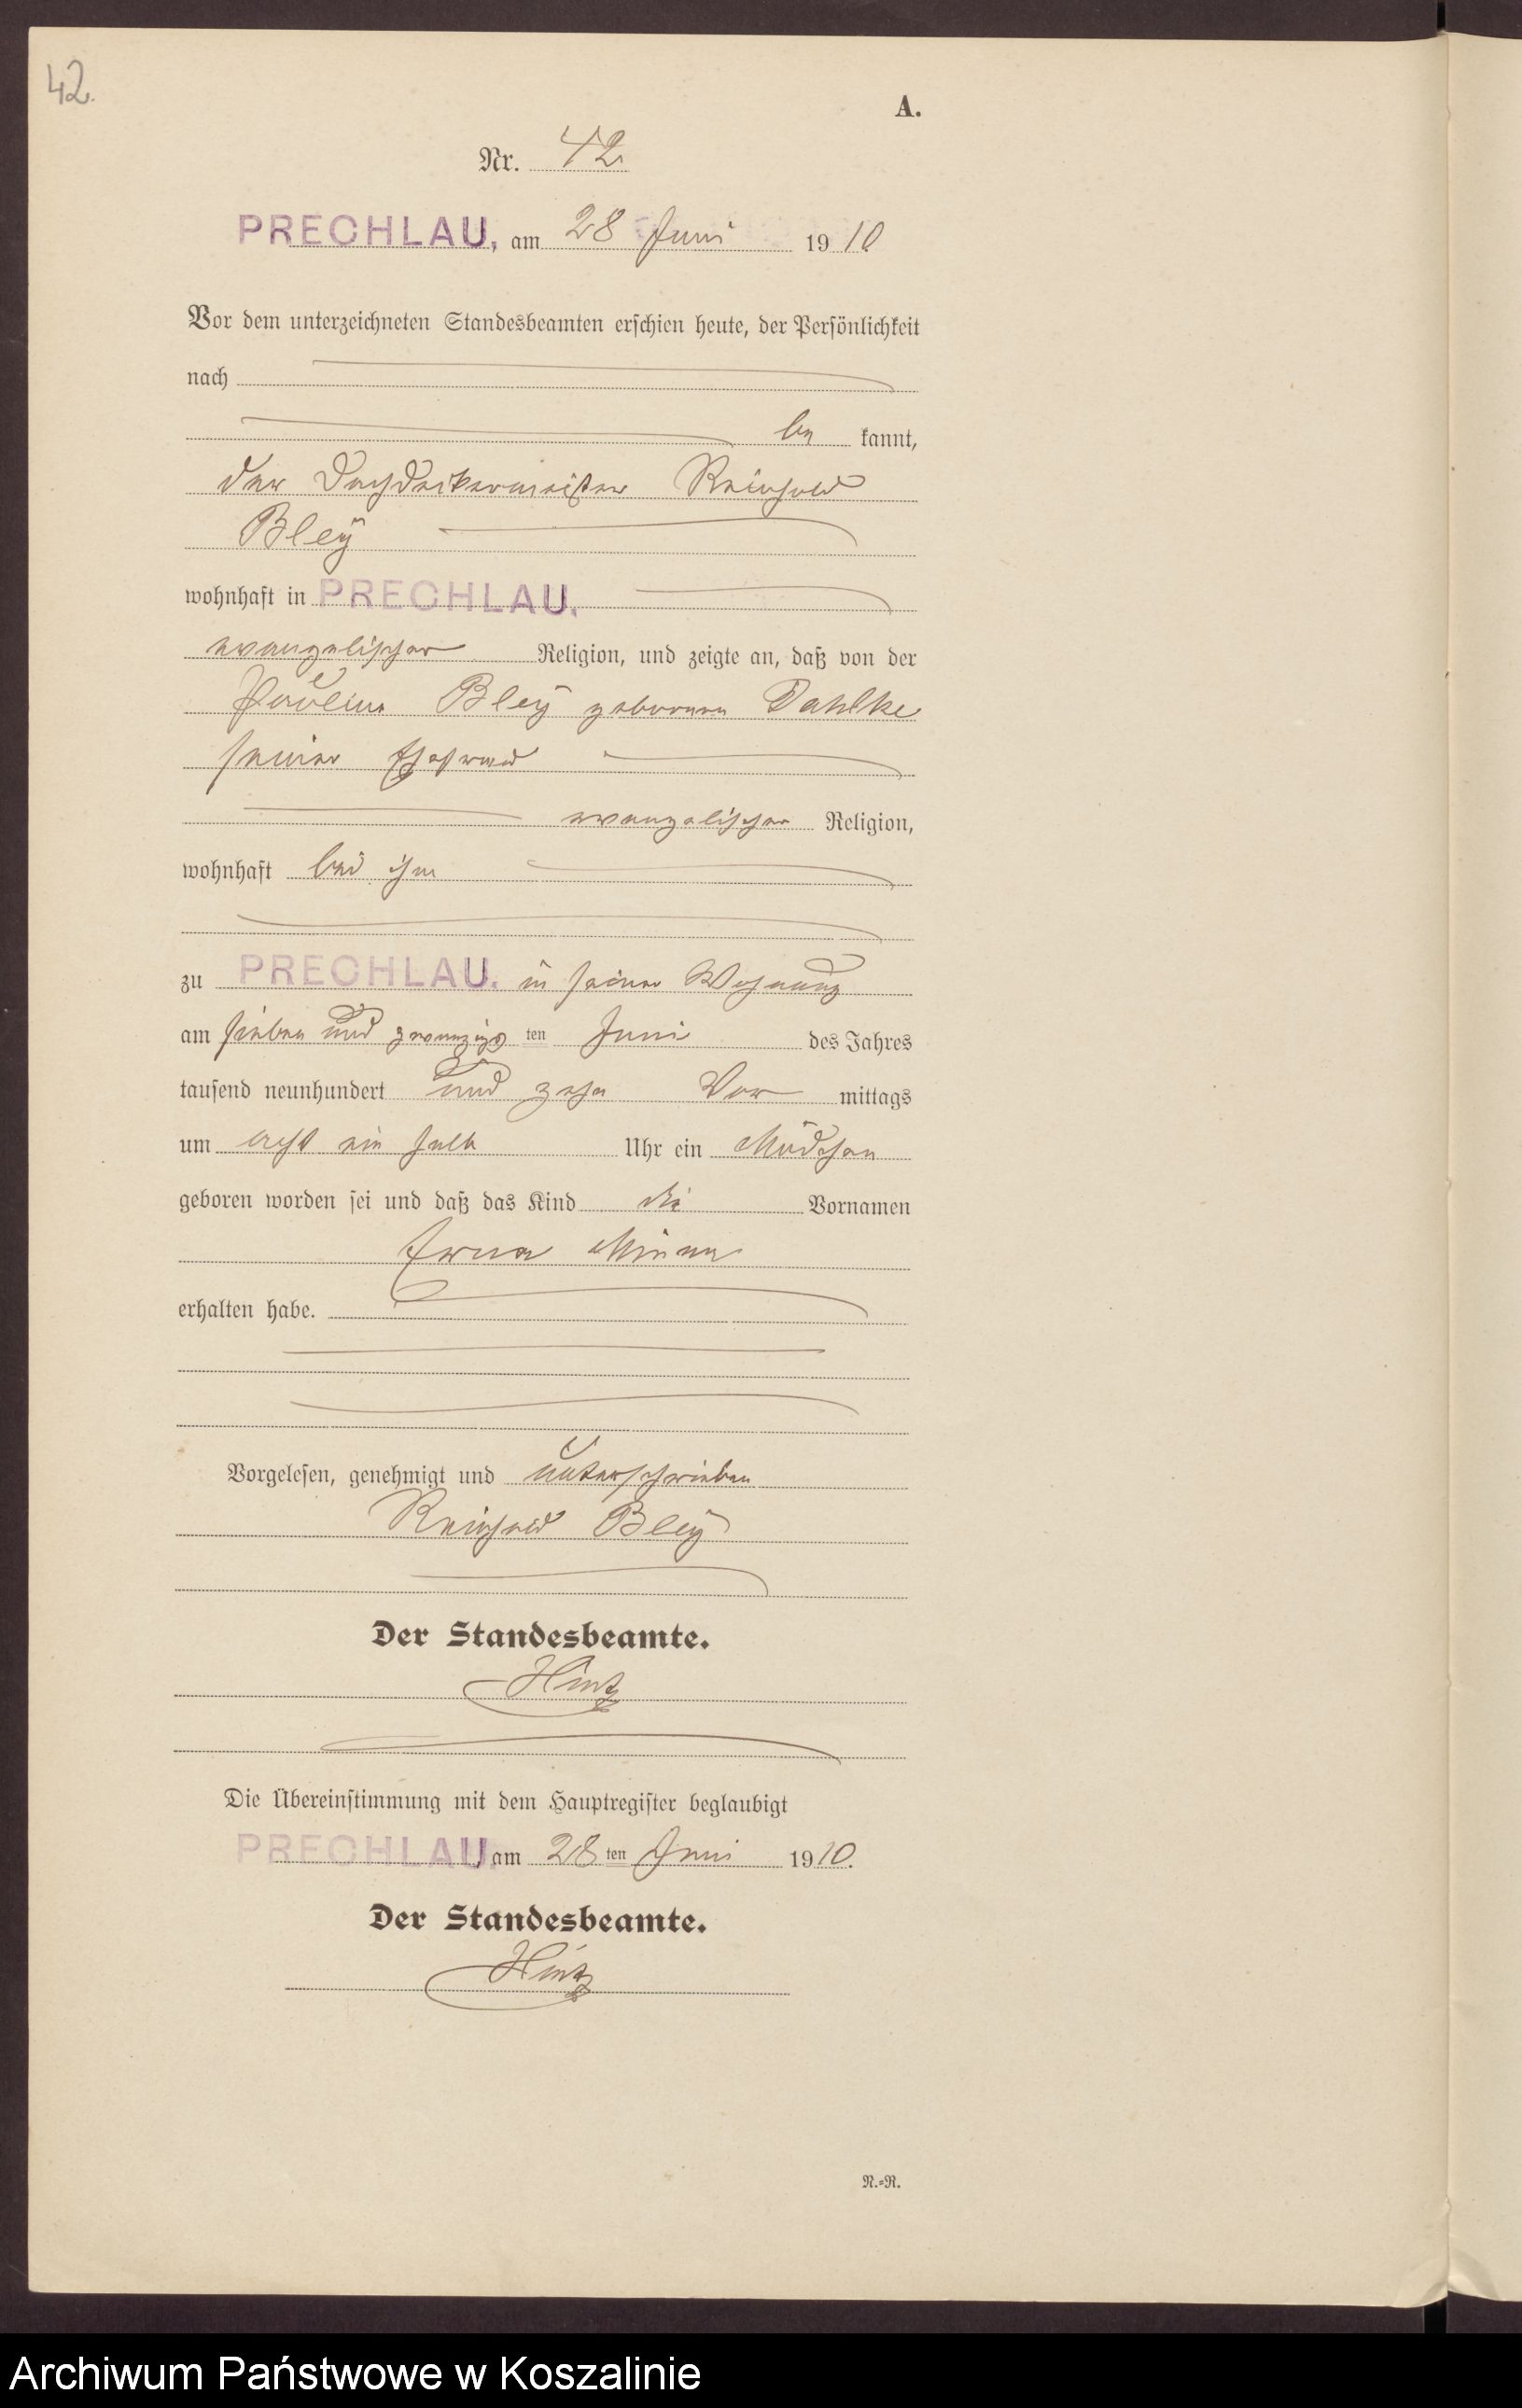 42.
A.
Nr. 42
PRECHLAU, am 28 Juni 1910
Vor dem unterzeichneten Standesbeamten erschien heute, der Persönlichkeit
nach
be kannt,
der Dachdeckermeister Reinhold
Bleÿ
wohnhaft in PRECHLAU.
evangelischer Religion, und zeigte an, daß von der
Bleÿ geborenen Dahlke
seiner Ehefrau
evangelischer Religion,
wohnhaft bei ihm
zu PRECHLAU. in seiner Wohnung
am sieben und zwanzigs ten Juni des Jahres
tausend neunhundert und zehn Vor mittags
um acht ein halb Uhr ein Mädchen
geboren worden sei und daß das Kind die Vornamen
Erna Minna
erhalten habe.
Vorgelesen, genehmigt und unterschrieben
Reinhold Bleÿ
Der Standesbeamte.
Hintz
Die Übereinstimmung mit dem Hauptregister beglaubigt
PRECHLAU, am 28 ten Juni 1910.
Der Standesbeamte.
Hintz
N.=R.
Archiwum Państwowe w Koszalinie